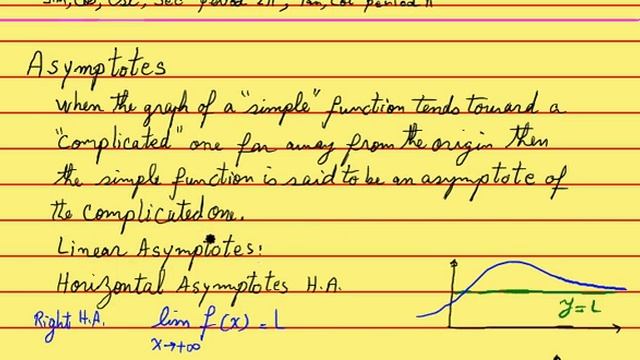 Sin, Cos, Csc, Sec period 2π, Tan, Cot period π
Asymptotes
when the graph of a "simple" function tends toward a
"complicated" one far away from the origin then
the simple function is said to be an asymptote of
the complicated one.
Linear Asymptotes:
Horizontal Asymptotes H.A.
Right H.A. lim f(x) = L
x→+∞
y=L